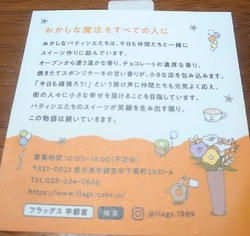 おかしな魔法をすべての人に
おかしなパティシエたちは、今日も仲間たちと一緒に
スイーツ作りに励んでいます。
オーブンから漂う温かな香り、チョコレートの濃厚な香り、
焼きたてスポンジケーキの甘い香りが、小さな店を包み込みます。
「今日も頑張ろう!」という掛け声に仲間たちも元気よく応え、
街の人々に小さな幸せを届けることを目指しています。
パティシエたちのスイーツが笑顔を生み出す限り、
この物語は続いていきます。
営業時間 10:00~19:00(不定休)
〒321-0923 栃木県宇都宮市下栗町2931-4
Tel.028-634-2666
https://www.flags-cake.jp/
フラッグス 宇都宮
検索
@flags.1989